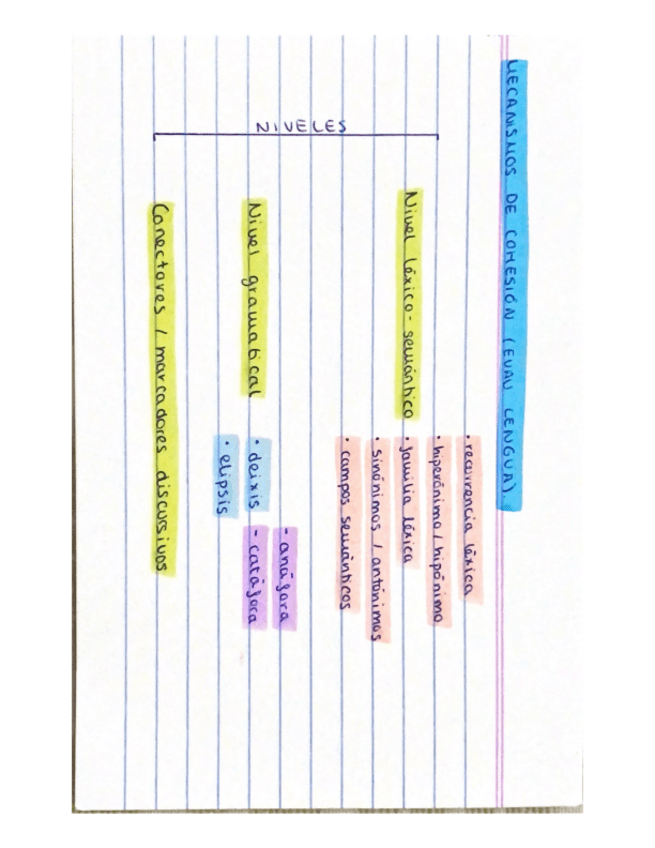 MECANISMOS DE COHESIÓN (EVAU LENGUA)
NIVELES
Nivel léxico-semántico
· recurrencia léxica
· hiperónimo / hipónimo
· familia léxica
· sinónimos / antónimos
· campos semánticos
Nivel gramatical
· deixis
- anáfora
- catáfora
· elipsis
Conectores / marcadores discursivos